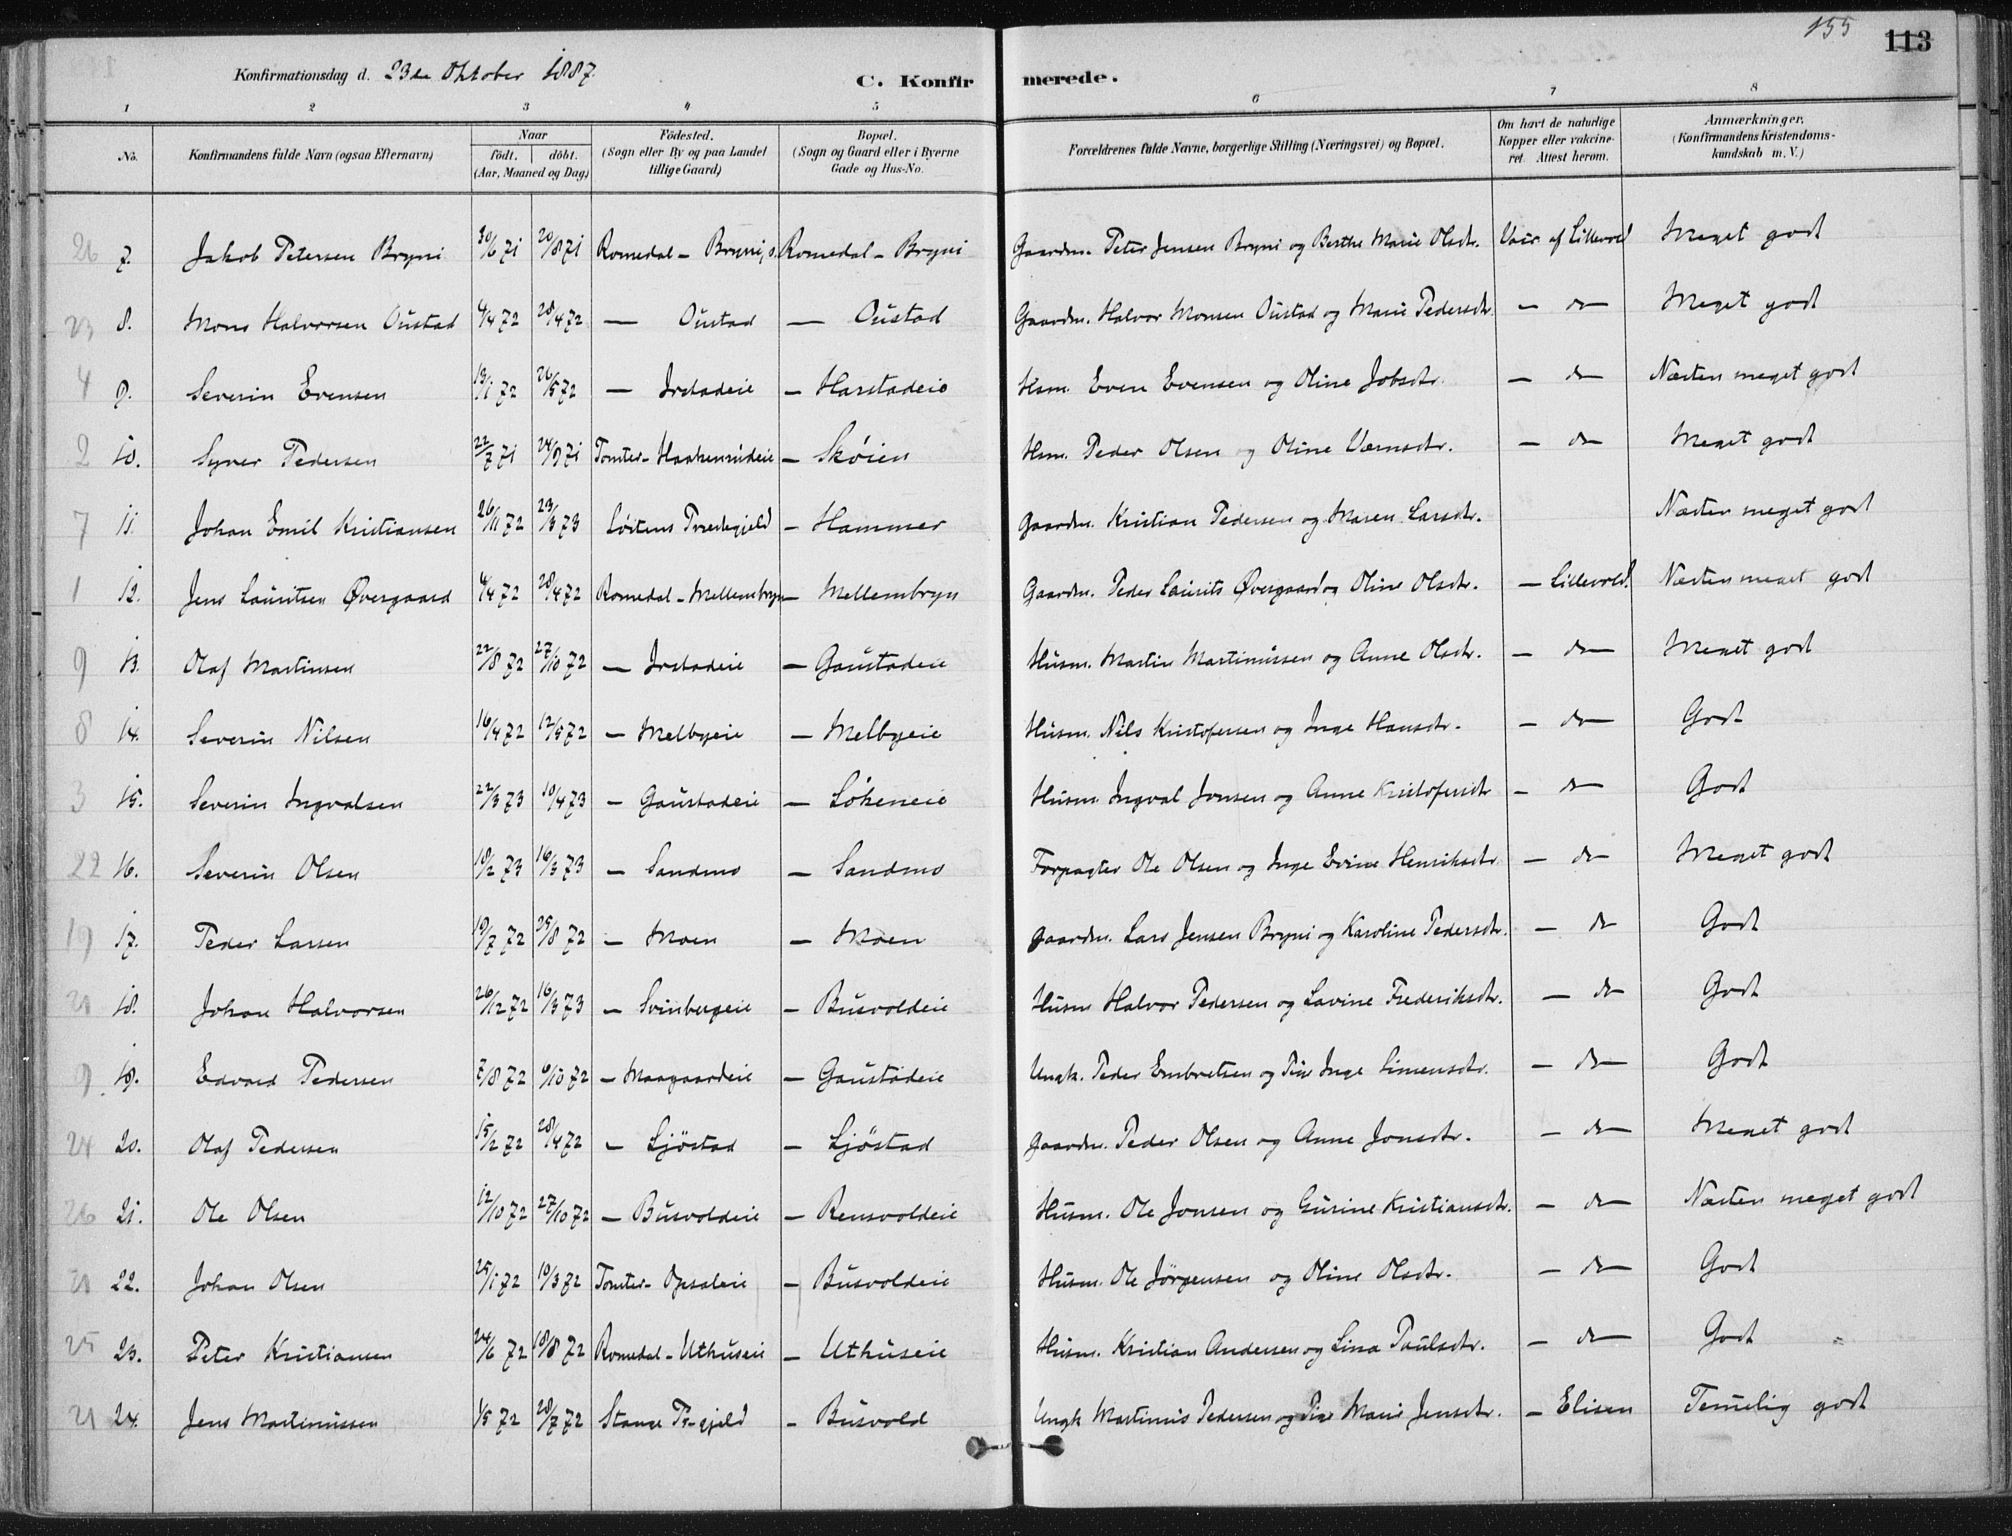 155
113
Konfirmationsdag d. 23de Oktober 1887.
C. Konfirmerede.
1 2 3 4 5 6 7 8
No.
Konfirmandens fulde Navn (ogsaa Efternavn)
Naar
født. døbt.
(Aar, Maaned og Dag)
Födested.
(Sogn eller By og paa Landet tillige Gaard)
Bopæl.
(Sogn og Gaard eller i Byerne Gade og Hus-No.
Forældrenes fulde Navne, borgerlige Stilling (Næringsvei) og Bopæl.
Om havt de naturlige Kopper eller vakcineret. Attest herom.
Anmærkninger.
(Konfirmandens Kristendomskundskab m. V.)
26 7. Jakob Petersen Bryni 30/6 71 20/8 71 Romedal - Bryni, s. Romedal - Bryni Gaardm. Peter Jensen Bryni og Berthe Marie Olsdtr. Vacc. af Lillevold Meget godt
23 8. Mons Halvorsen Oustad 4/4 72 28/4 72 — Oustad — Oustad Gaardm. Halvor Monsen Oustad og Marie Pedersdtr. — do — Meget godt
4 9. Severin Evensen 13/1 72 26/5 72 — Irstadeie — Harstadeie Hsm. Even Evensen og Oline Jobsdtr. — do — Næsten meget godt
2 10. Syver Pedersen 22/7 71 24/9 71 Tomter - Haakenrudeie — Skøien Hsm. Peder Olsen og Oline Larsdtr. — do — Meget godt
7 11. Johan Emil Kristiansen 26/11 72 23/3 73 Løitens Præstegjeld — Hammer Gaardm. Kristian Pedersen og Maren Larsdtr. Næsten meget godt
1 12. Jens Lauritsen Øvergaard 4/4 72 28/4 72 Romedal - Mellembryn — Mellembryn Gaardm. Peder Laurits Øvergaard og Oline Olsdtr. — Lillevold. Næsten meget godt
9 13. Olaf Martinsen 22/8 72 27/10 72 — Irstadeie — Gaustadeie Husm. Martin Martinussen og Anne Olsdtr. — do — Meget godt
8 14. Severin Nilsen 16/4 72 12/5 72 — Melbyeie — Melbyeie Husm. Nils Kristofersen og Inge Hansdtr. — do — Godt
3 15. Severin Ingvalsen 22/3 73 10/4 73 — Gaustadeie — Løkeneie Husm. Ingval Jonsen og Anne Kristofersdtr — do — Godt
22 16. Severin Olsen 10/2 73 16/3 73 — Sandmo — Sandmo Forpagter Ole Olsen og Inge Evine Henriksdtr — do — Meget godt
19 17. Peder Larsen 19/7 72 25/8 72 — Moen — Moen Gaardm. Lars Jensen Bryni og Karoline Pedersdtr. — do Godt
18. Johan Halvorsen 26/12 72 16/3 73 — Svinbergeie — Busvoldeie Husm Halvor Pedersen og Lovine Frederiksdtr. — do Godt
19. Edvard Pedersen 7/8 72 6/10 72 — Maagaardeie — Gaustadeie Ungk. Peder Embretsen og Pige Inge Simensdtr. — do — Godt
24 20. Olaf Pedersen 15/2 72 28/4 72 — Ljøstad — Ljøstad Gaardm. Peder Olsen og Anne Jonsdtr. — do — Meget godt
26 21. Ole Olsen 12/10 72 27/10 72 — Busvoldeie — Rensvoldeie Husm. Ole Jonsen og Gurine Kristiansdtr. — do — Næsten meget godt
22. Johan Olsen 25/1 72 10/3 72 Tomter - Opsaleie — Busvoldeie Husm. Ole Jørgensen og Oline Olsdtr. — do — Godt
25 23. Peter Kristiansen 24/6 72 18/8 72 Romedal - Uthuseie — Uthuseie Husm. Kristian Andersen og Lina Paulsdtr. — do — Godt
21 24. Jens Martinussen 1/5 72 28/7 72 Stange Pr-gjeld — Busvold Ungk Martinus Pedersen og Pige Marie Jensdtr. — Elisen Temelig godt